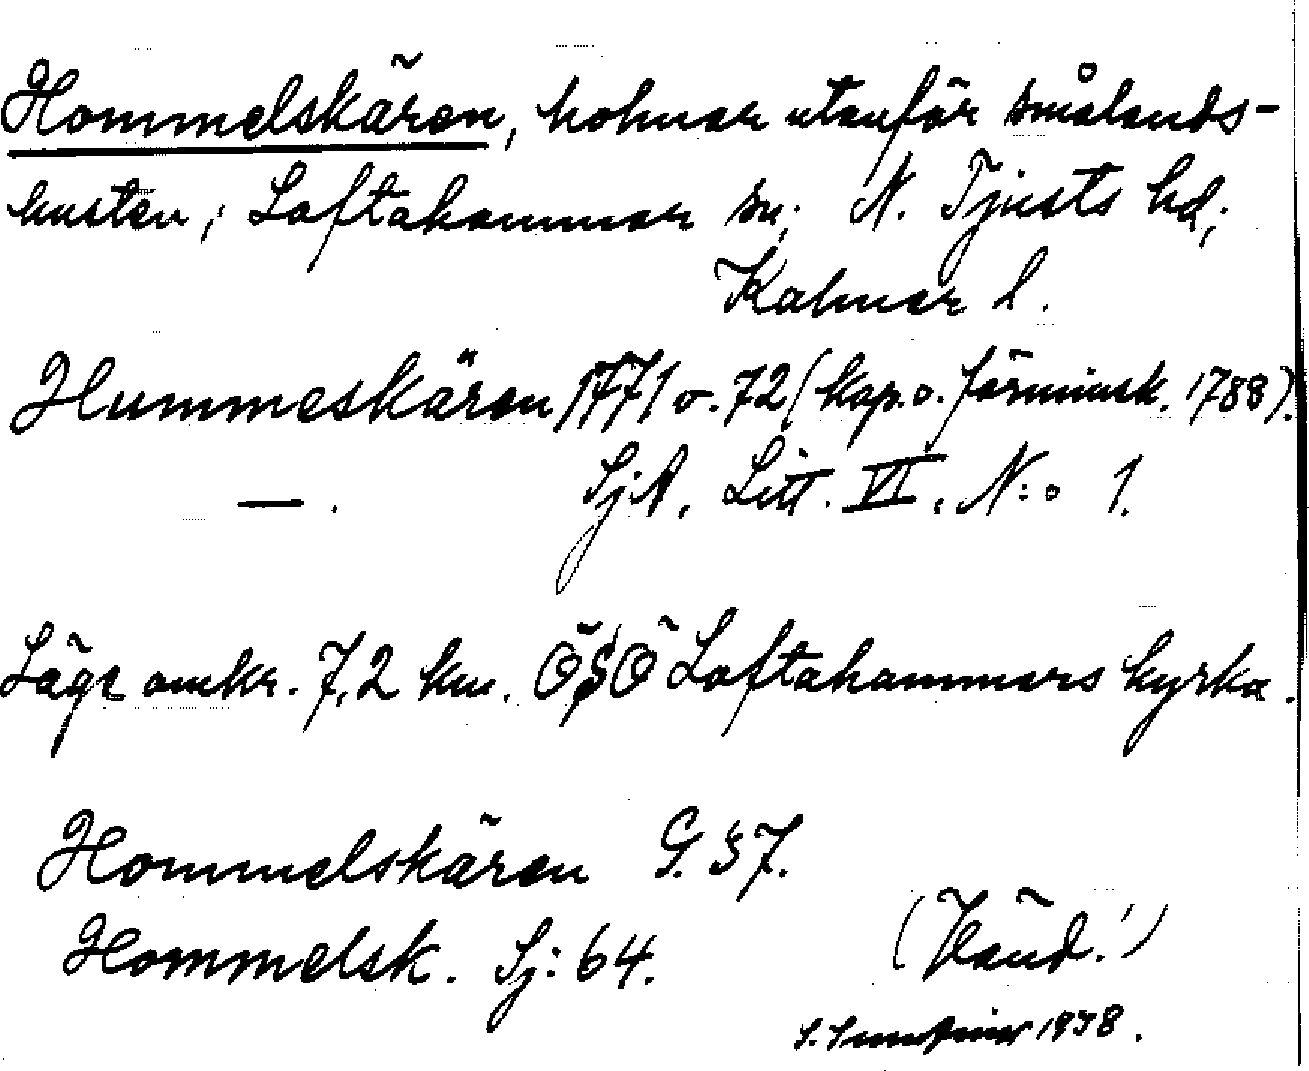 Hommelskären, holmar utanför smålands-
kusten, Loftahammar sn; N. Tjusts hd,;
Kalmar l.
Hummeskären 1771 o. 72 (kap. o. förminsk. 1788).
— . SjA, Litt. VI, N:o 1.
Läge omkr. 7,2 km. ÖSÖ Loftahammars kyrka.
Hommelskären G. 37.
Hommelsk. Sj: 64.
(Händ.!)
S. 1938.